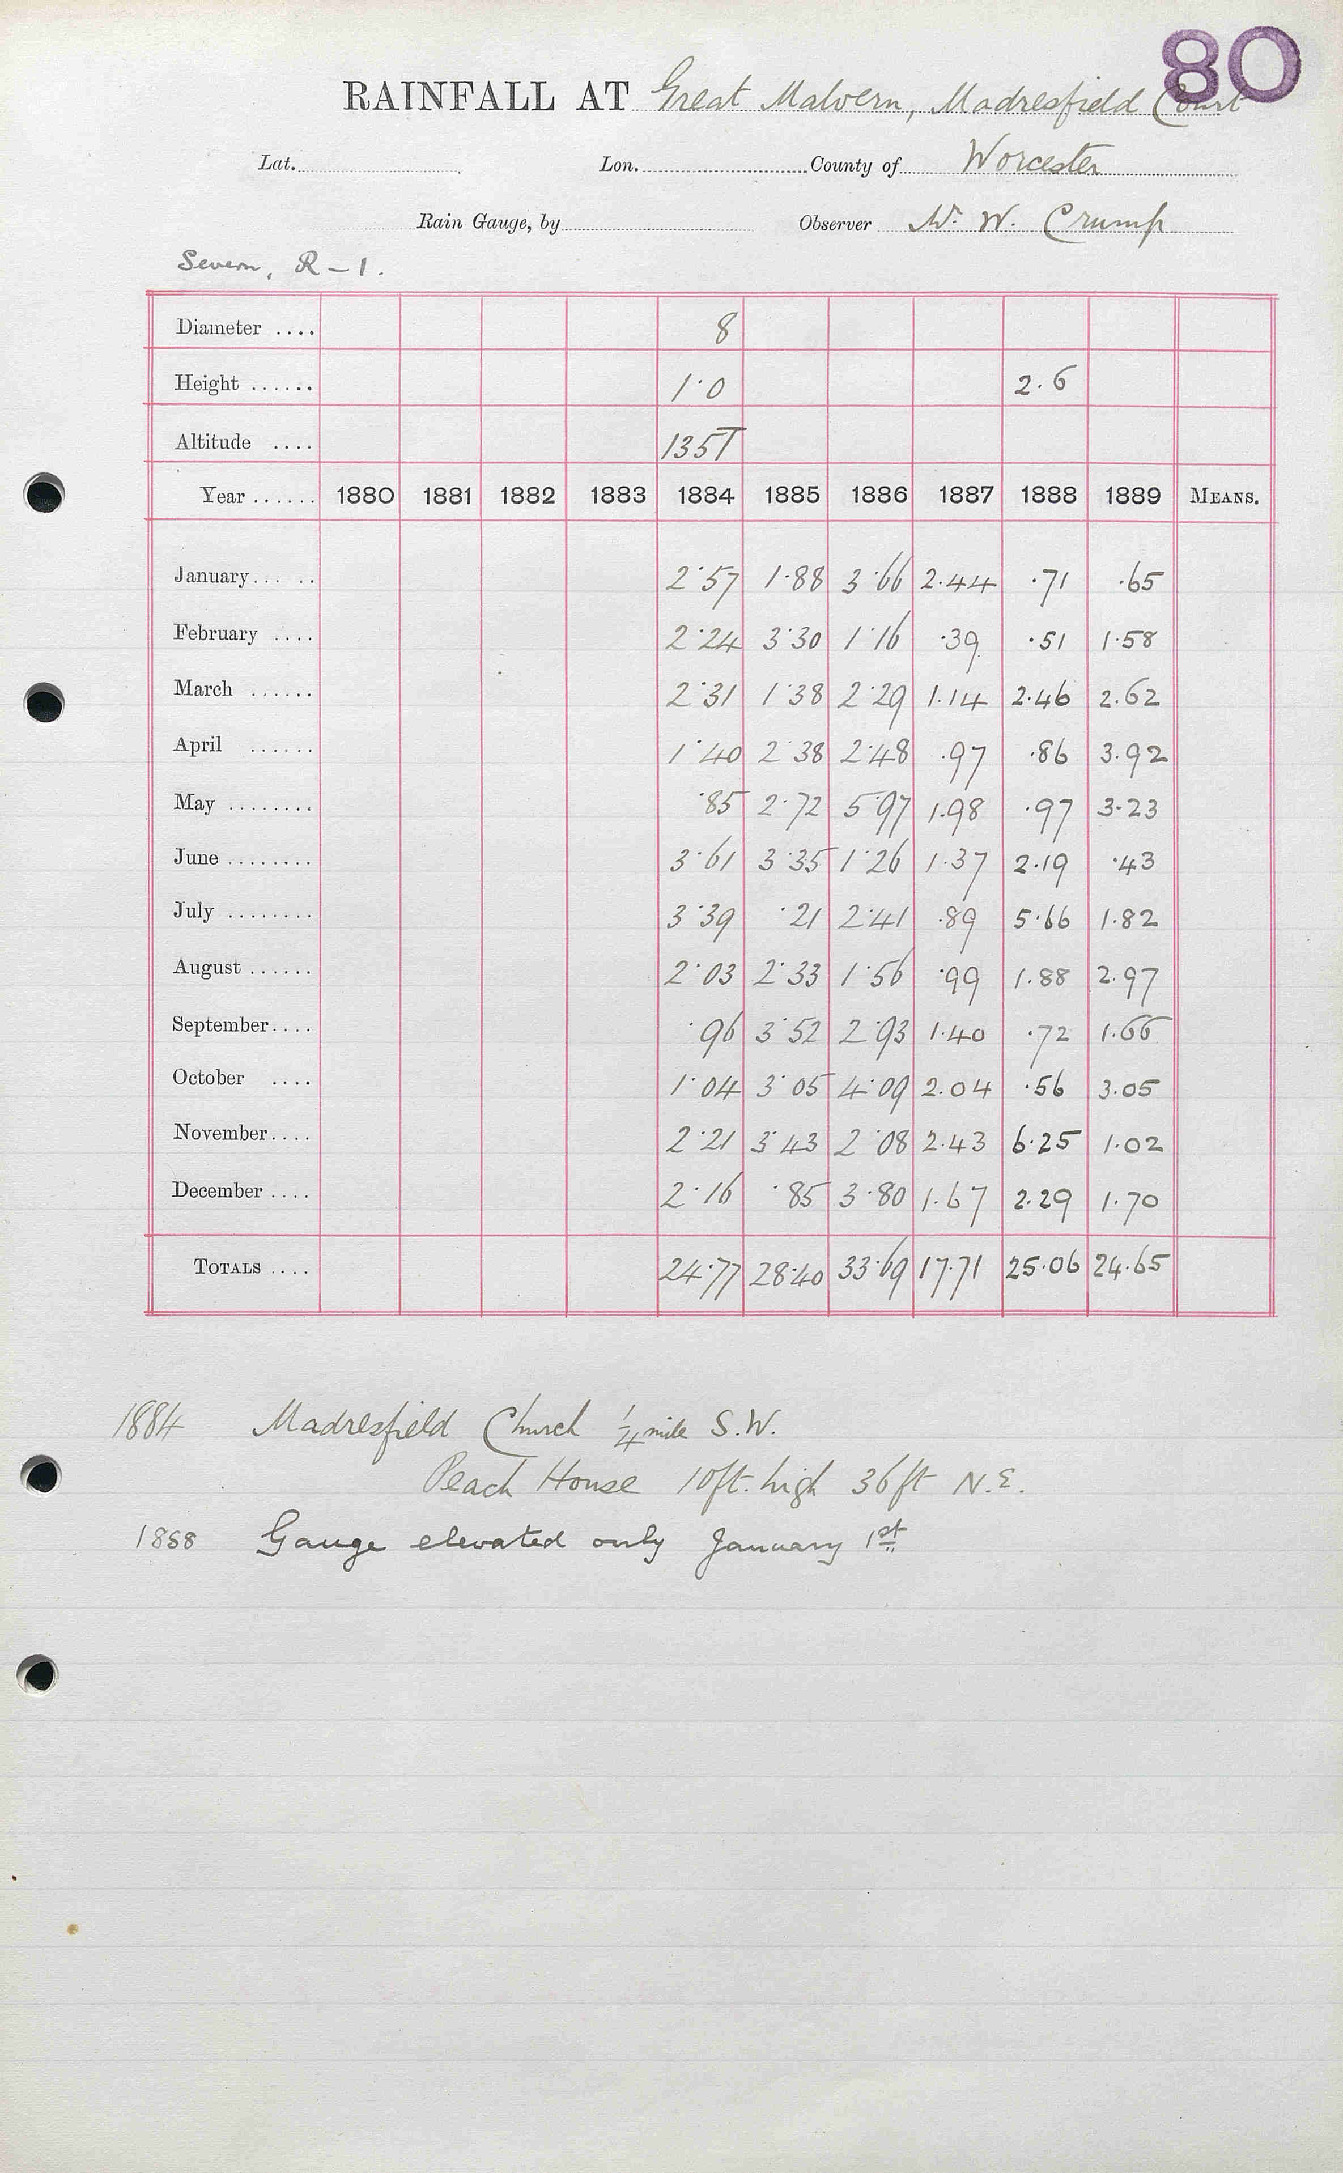 80
RAINFALL AT Great Malvern, Madresfield Court
Lat. Lon. County of Worcester
Rain Gauge, by Observer Mr. W. Crump
Severn, R – 1.
Diameter .... 8
Height ...... 1·0 2.6
Altitude .... 135T
Year ...... 1880 1881 1882 1883 1884 1885 1886 1887 1888 1889 MEANS.
January... .. 2·57 1·88 3·66 2.44 ·71 ·65
February .... 2·24 3·30 1·16 ·39 ·51 1·58
March ...... 2·31 1·38 2·29 1.14 2.46 2.62
April ...... 1·40 2·38 2·48 ·97 ·86 3.92
May ........ ·85 2·72 5·97 1.98 ·97 3·23
June ........ 3·61 3·35 1·26 1·37 2·19 ·43
July ........ 3·39 ·21 2·41 ·89 5·66 1.82
August ...... 2·03 2·33 1·56 ·99 1.88 2.97
September.... ·96 3·52 2·93 1·40 ·72 1.66
October .... 1·04 3·05 4·09 2.04 ·56 3.05
November.... 2·21 3·43 2·08 2·43 6·25 1.02
December .... 2·16 ·85 3·80 1.67 2.29 1.70
TOTALS .... 24·77 28·40 33·69 17.71 25·06 24.65
1884 Madresfield Church ¼ mile S.W.
Peach House 10ft. high 36ft N.E.
1888 Gauge elevated only January 1st